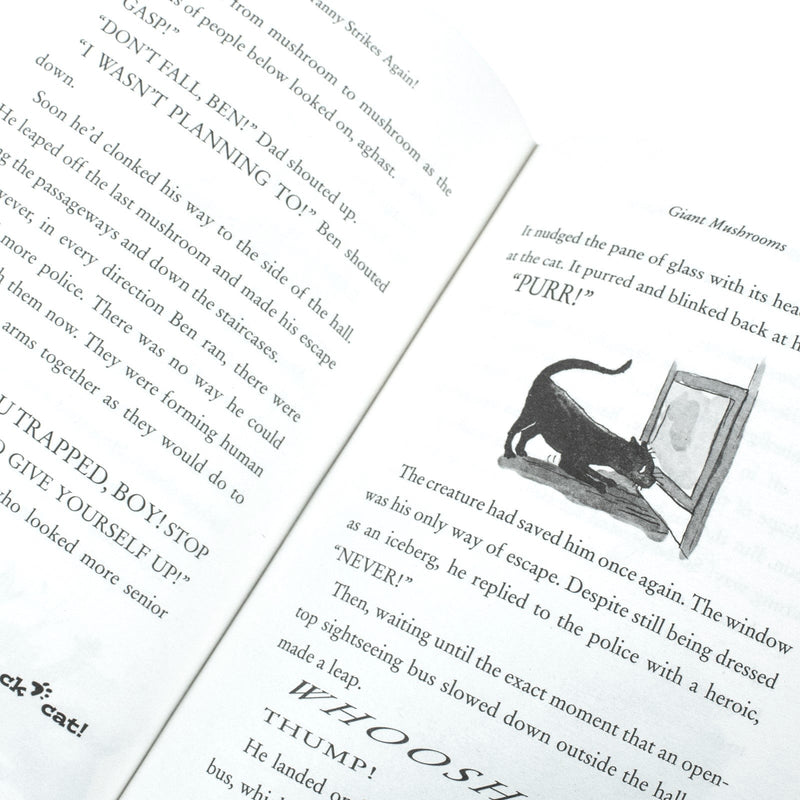 anny Strikes Again!
from mushroom to mushroom as the
s of people below looked on, aghast.
GASP!”
“DON’T FALL, BEN!” Dad shouted up.
“I WASN’T PLANNING TO!” Ben shouted
down.
Soon he’d clonked his way to the side of the hall.
He leaped off the last mushroom and made his escape
ng the passageways and down the staircases.
wever, in every direction Ben ran, there were
more police. There was no way he could
h them now. They were forming human
arms together as they would do to
U TRAPPED, BOY! STOP
O GIVE YOURSELF UP!”
ho looked more senior
ck cat!
Giant Mushrooms
It nudged the pane of glass with its hea
at the cat. It purred and blinked back at h
“PURR!”
The creature had saved him once again. The window
was his only way of escape. Despite still being dressed
as an iceberg, he replied to the police with a heroic,
“NEVER!”
Then, waiting until the exact moment that an open-
top sightseeing bus slowed down outside the hall
made a leap.
WHOOSH
THUMP!
He landed on
bus, whic